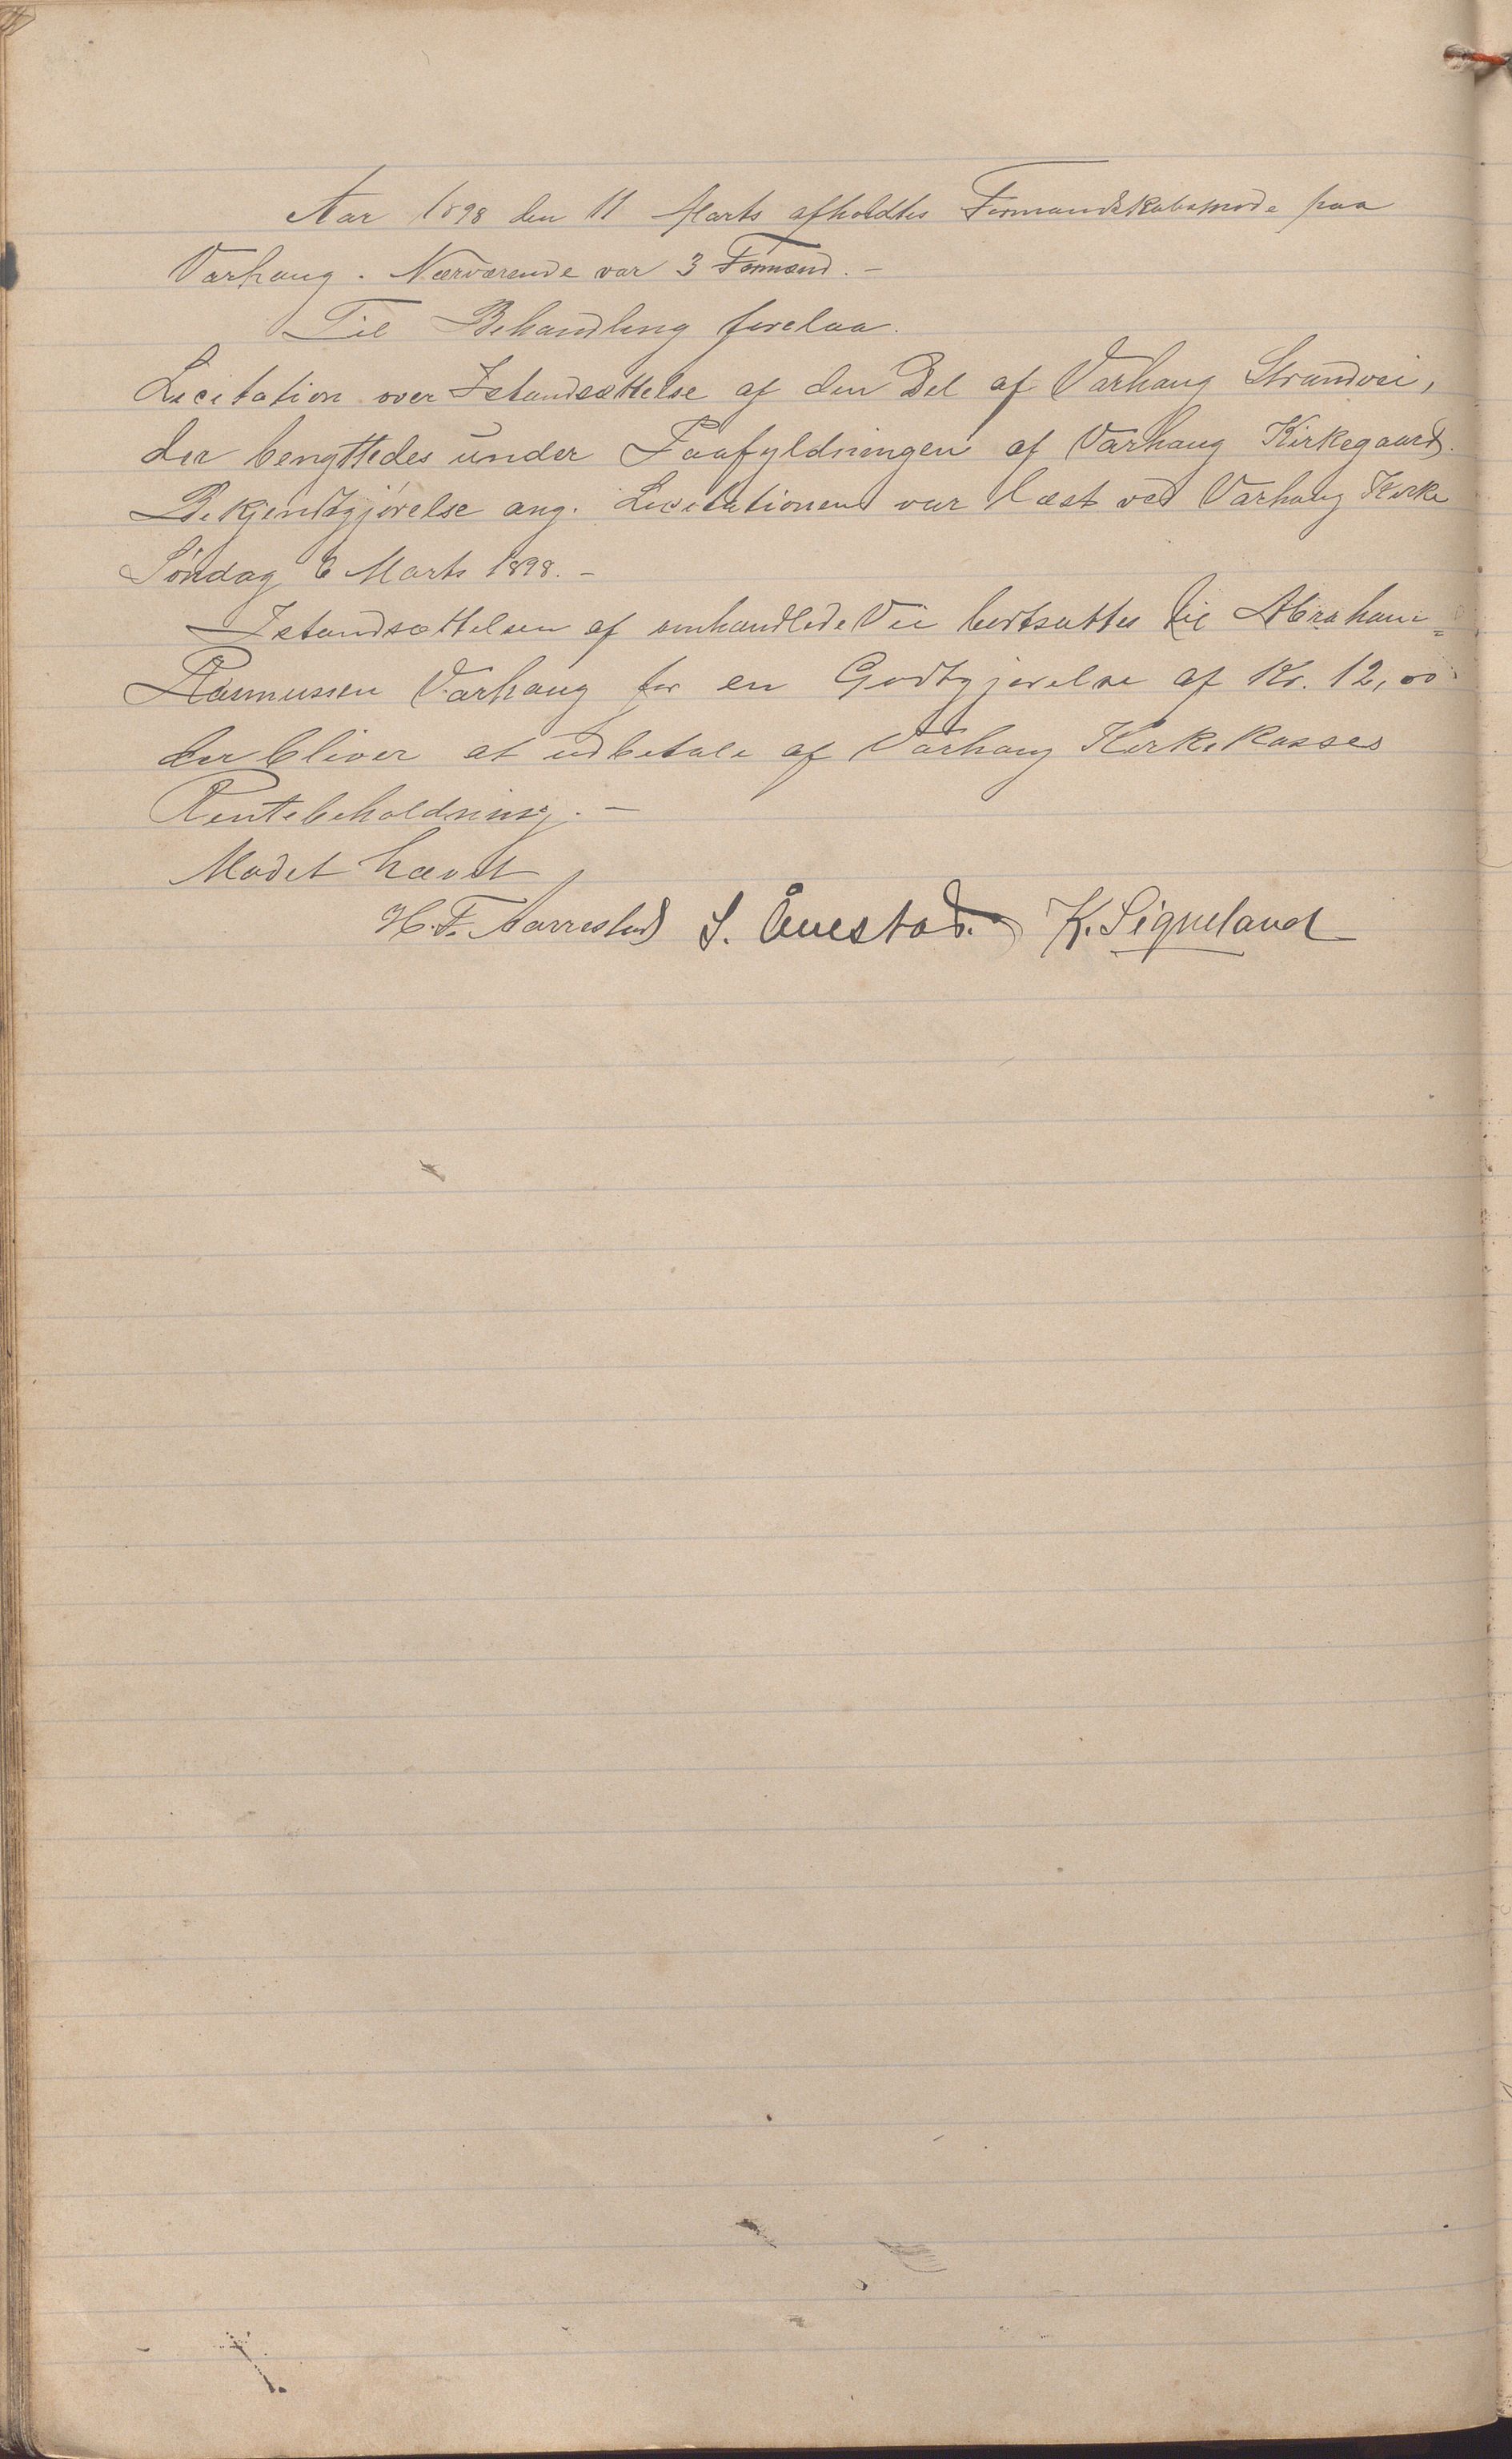 Aar 1898 den 11 Marts afholdtes Formandskabsmøde paa
Varhaug. Nærværende var 3 Formænd. –
Til Behandling forelaa.
Licitation over Istandsættelse af den Del af Varhaug Strandvei,
der benyttedes under Paafyldningen af Varhaug Kirkegaard.
Bekjendtgjørelse ang. Licitationen var læst ved Varhaug Kirke
Søndag 6 Marts 1898. –
Istandsættelsen af omhandlede Vei bortsattes til Abraham
Rasmussen Varhaug for en Godtgjørelse af Kr. 12,00
der bliver at udbetale af Varhaug Kirkekasses
Rentebeholdning. –
Mødet hævet
H. T. Aarrestad S. Ånestad. K. Sigueland